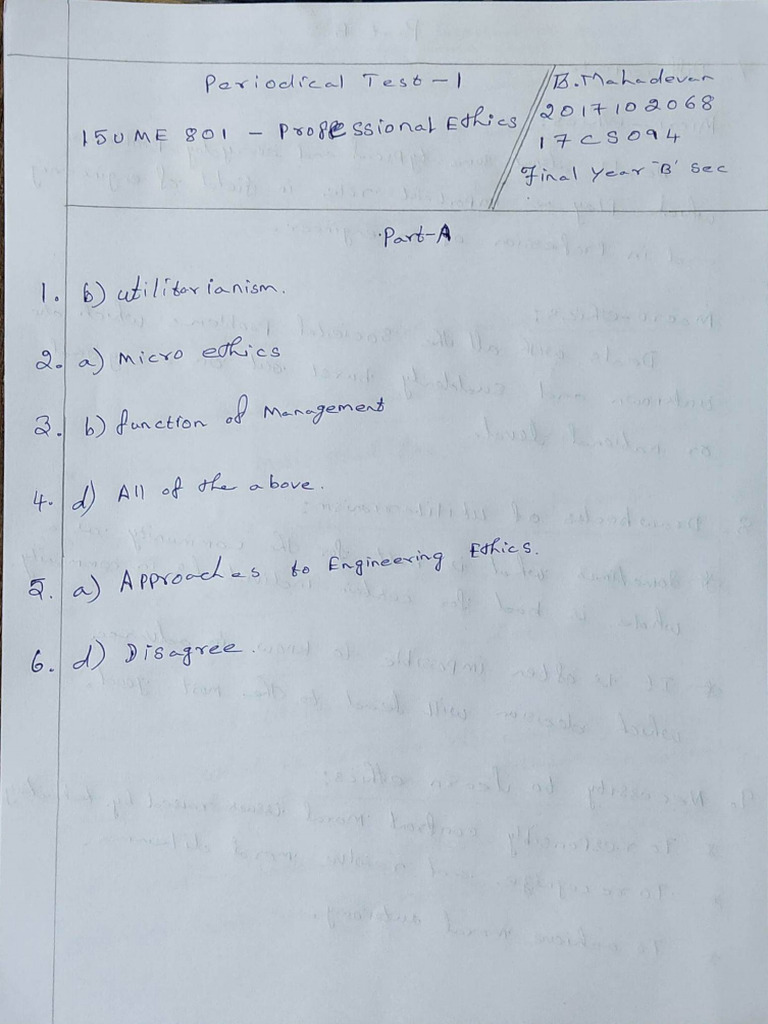 Periodical Test-1
15UME 801 - Professional Ethics
B.Mahadevan
2017102068
17CS094
Final year 'B' Sec
Part-A
1. b) utilitarianism.
2. a) Micro ethics
3. b) function of Management
4. d) All of the above.
5. a) Approaches to Engineering Ethics.
6. d) Disagree.